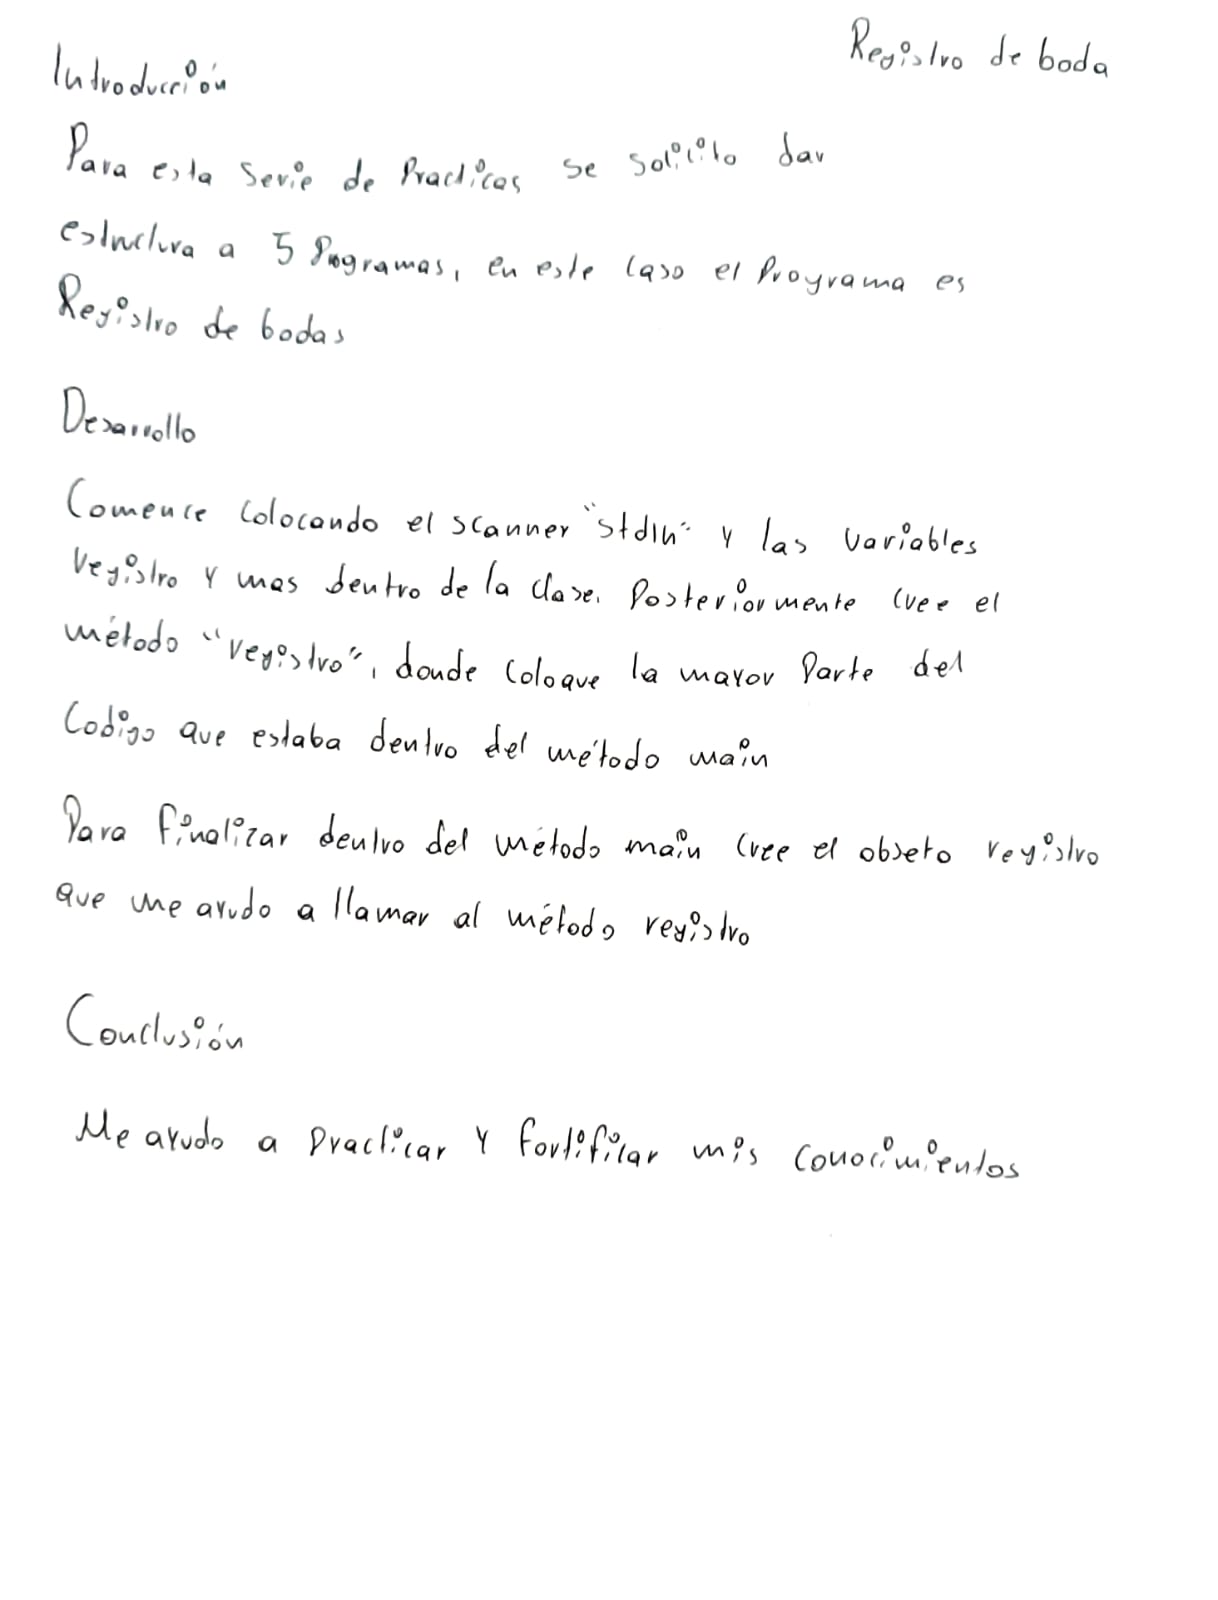 Registro de boda
Introducción
Para esta Serie de Practicas se solicito dar
estructura a 5 Programas, en este caso el Programa es
Registro de bodas
Desarrollo
Comence colocando el scanner "stdIn" y las variables
registro y mas dentro de la clase. Posteriormente cree el
método "registro", donde coloque la mayor Parte del
Codigo que estaba dentro del método main
Para finalizar dentro del método main cree el objeto registro
que me ayudo a llamar al método registro
Conclusión
Me ayudo a Practicar y fortificar mis conocimientos